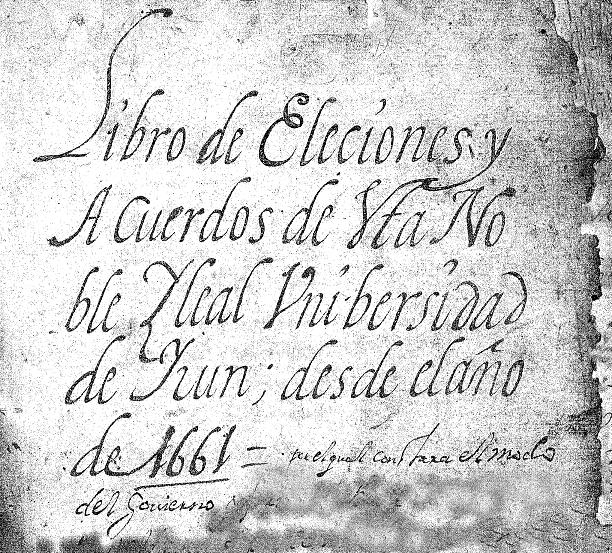 Libro de Eleciones y
Acuerdos de Vta No
ble Yleal Vnibersidad
de Yrun; desde elaño
de 1661 = enelqual constara el modo
del Govierno